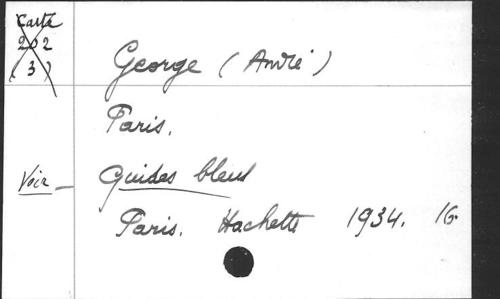 Carte
202
(3)
George (André)
Paris.
Voir — Guides bleus
Paris. Hachette 1934. 16°